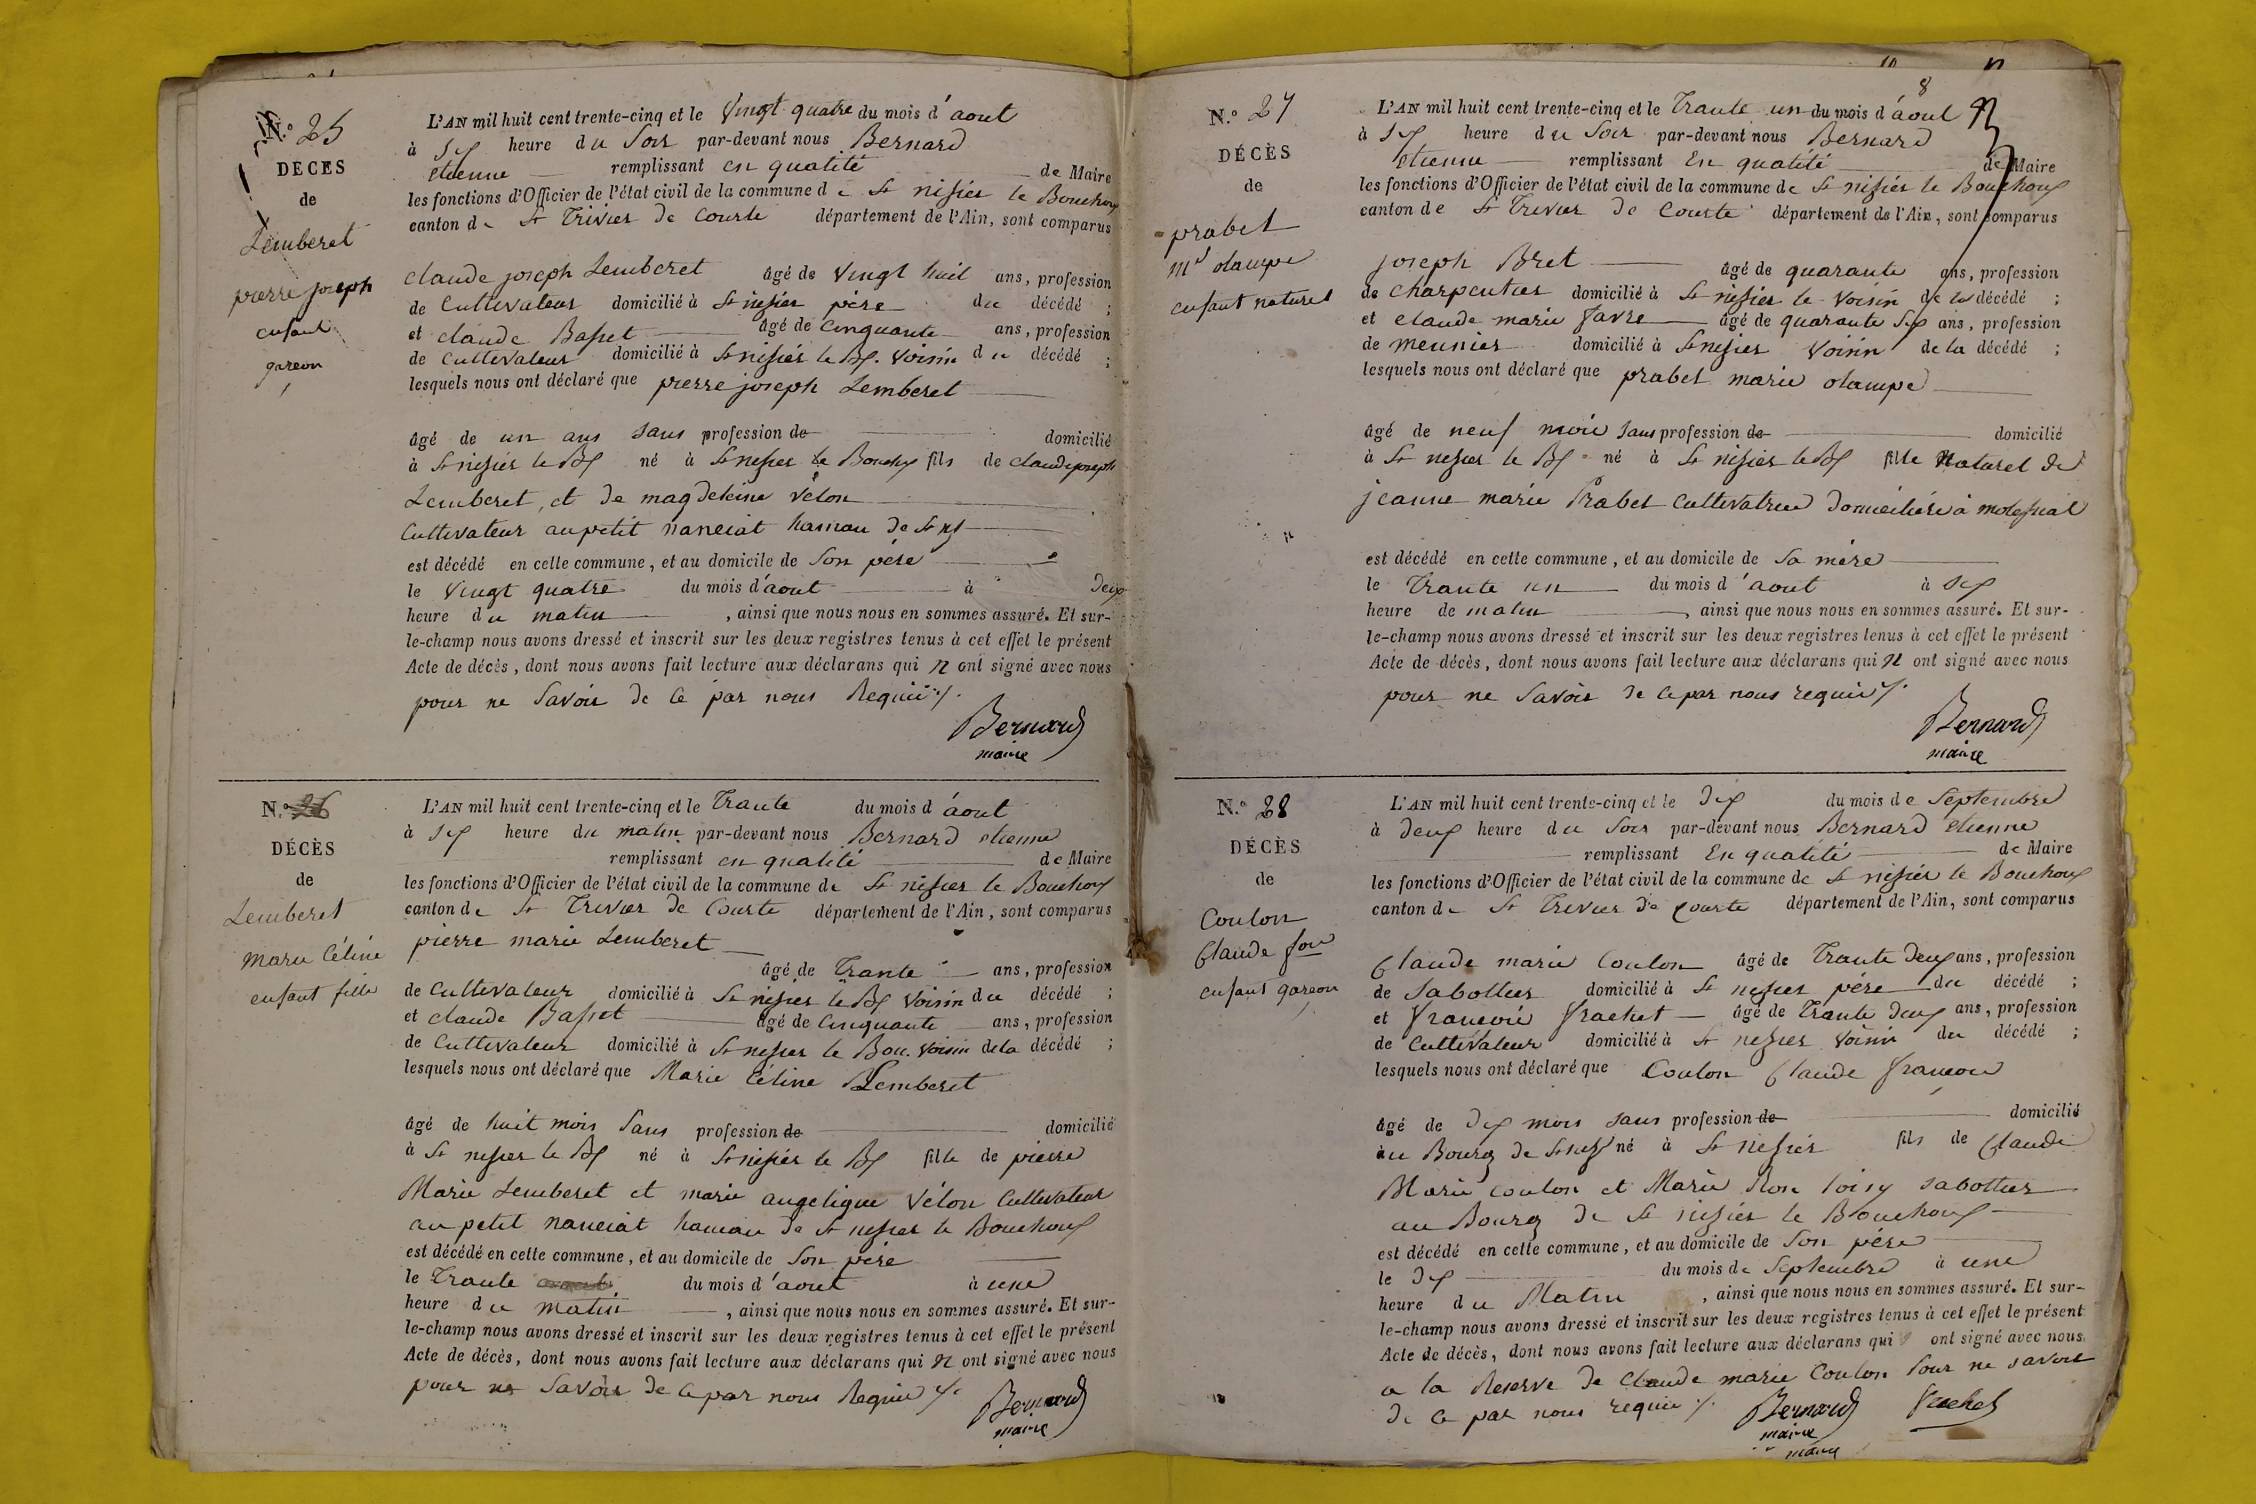 N.° 25
DÉCÈS
de
Lemberet
pierre joseph
enfant
garcon
L'AN mil huit cent trente-cinq et le Vingt quatre du mois d'aout
à Six heure du Soir par-devant nous Bernard
etienne remplissant en qualité de Maire
les fonctions d'Officier de l'état civil de la commune de St nisier le Bouchoux
canton de St Trivier de Courte département de l'Ain, sont comparus
claude joseph Lemberet âgé de Vingt huit ans, profession
de Cultivateur domicilié à St nisier père du décédé ;
et claude Basset âgé de Cinquante ans, profession
de Cultivateur domicilié à St nisier le Bx. Voisin du décédé ;
lesquels nous ont déclaré que pierre joseph Lemberet
âgé de un ans Sans profession de domicilié
à St nisier le Bx né à St nisier le Bouchx fils de claude joseph
Lemberet, et de magdeleine Vélon
Cultivateur au petit nanciat hamau de St ns
est décédé en cette commune, et au domicile de Son père
le Vingt quatre du mois d'aout à Deux
heure du matin , ainsi que nous nous en sommes assuré. Et sur-
le-champ nous avons dressé et inscrit sur les deux registres tenus à cet effet le présent
Acte de décès, dont nous avons fait lecture aux déclarans qui n ont signé avec nous
pour ne Savoir de Ce par nous Requis ./.
Bernard
maire
N.° 26
DÉCÈS
de
Lemberet
marie Céline
enfant fille
L'AN mil huit cent trente-cinq et le Trante du mois d'aout
à Six heure du matin par-devant nous Bernard etienne
remplissant en qualité de Maire
les fonctions d'Officier de l'état civil de la commune de St nisier le Bouchoux
canton de St Trivier de Courte département de l'Ain, sont comparus
pierre marie Lemberet
âgé de Trante ans, profession
de Cultivateur domicilié à St nisier le Bx Voisin du décédé ;
et claude Basset âgé de Cinquante ans, profession
de Cultivateur domicilié à St nisier le Bou. Voisin dela décédé ;
lesquels nous ont déclaré que Marie Céline Lemberet
âgé de huit mois Sans profession de domicilié
à St nisier le Bx né à St nisier le Bx fille de pierre
Marie Lemberet et marie angelique Vélon Cultivateur
au petit nanciat hamau de St nisier le Bouchoux
est décédé en cette commune, et au domicile de Son père
le Trante du mois d'aout à une
heure du matin , ainsi que nous nous en sommes assuré. Et sur-
le-champ nous avons dressé et inscrit sur les deux registres tenus à cet effet le présent
Acte de décès, dont nous avons fait lecture aux déclarans qui n ont signé avec nous
pour ne Savoir de Ce par nous Requis ./.
Bernard
maire
8
N.° 27
DÉCÈS
de
prabet
mie olampe
enfant naturel
L'AN mil huit cent trente-cinq et le Trante un du mois d'aout
à Six heure du Soir par-devant nous Bernard
etienne remplissant En qualité de Maire
les fonctions d'Officier de l'état civil de la commune de St nisier le Bouchoux
canton de St Trivier de Courte département de l'Ain, sont comparus
joseph Bret âgé de quarante ans, profession
de charpentier domicilié à St nisier le Voisin de la décédé ;
et claude marie favre âgé de quarante Six ans, profession
de meunier domicilié à St nisier Voisin de la décédé ;
lesquels nous ont déclaré que prabet marie olampe
âgé de neuf mois Sans profession de domicilié
à St nisier le Bx né à St nisier le Bx fille Naturel de
jeanne marie Prabet Cultivatrice domiciliée à molessiat
est décédé en cette commune, et au domicile de Sa mère
le Trante un du mois d'aout à Six
heure de matin , ainsi que nous nous en sommes assuré. Et sur-
le-champ nous avons dressé et inscrit sur les deux registres tenus à cet effet le présent
Acte de décès, dont nous avons fait lecture aux déclarans qui n ont signé avec nous
pour ne Savoir de Ce par nous requis ./.
Bernard
maire
N.° 28
DÉCÈS
de
Coulon
Claude fois
enfant garcon
L'AN mil huit cent trente-cinq et le Dix du mois de Septembre
à deux heure du Soir par-devant nous Bernard etienne
remplissant En qualité de Maire
les fonctions d'Officier de l'état civil de la commune de St nisier le Bouchoux
canton de St Trivier de Courte département de l'Ain, sont comparus
Claude marie Coulon âgé de Trante Deux ans, profession
de Sabottier domicilié à St nisier père du décédé ;
et francois frachet âgé de Trante Deux ans, profession
de Cultivateur domicilié à St nisier Voisin du décédé ;
lesquels nous ont déclaré que Coulon Claude francois
âgé de Dix mois sans profession de domicilié
au Bourg de St nisr né à St nisier fils de Claude
Marie Coulon et Marie Rose loisy sabottier
au Bourg de St nisier le Bouchoux
est décédé en cette commune, et au domicile de Son père
le Dix du mois de Septembre à une
heure du Matin , ainsi que nous nous en sommes assuré. Et sur-
le-champ nous avons dressé et inscrit sur les deux registres tenus à cet effet le présent
Acte de décès, dont nous avons fait lecture aux déclarans qui ont signé avec nous
a la Reserve de Claude marie Coulon Pour ne savoir
de Ce par nous requis ./. Bernard frachet
maire
maire